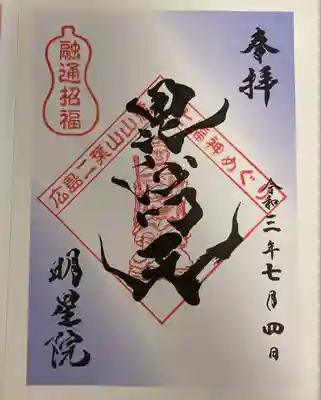 奉拝
毘沙門天
令和三年七月四日
明星院
融通招福
広島二葉山山
福神めぐり